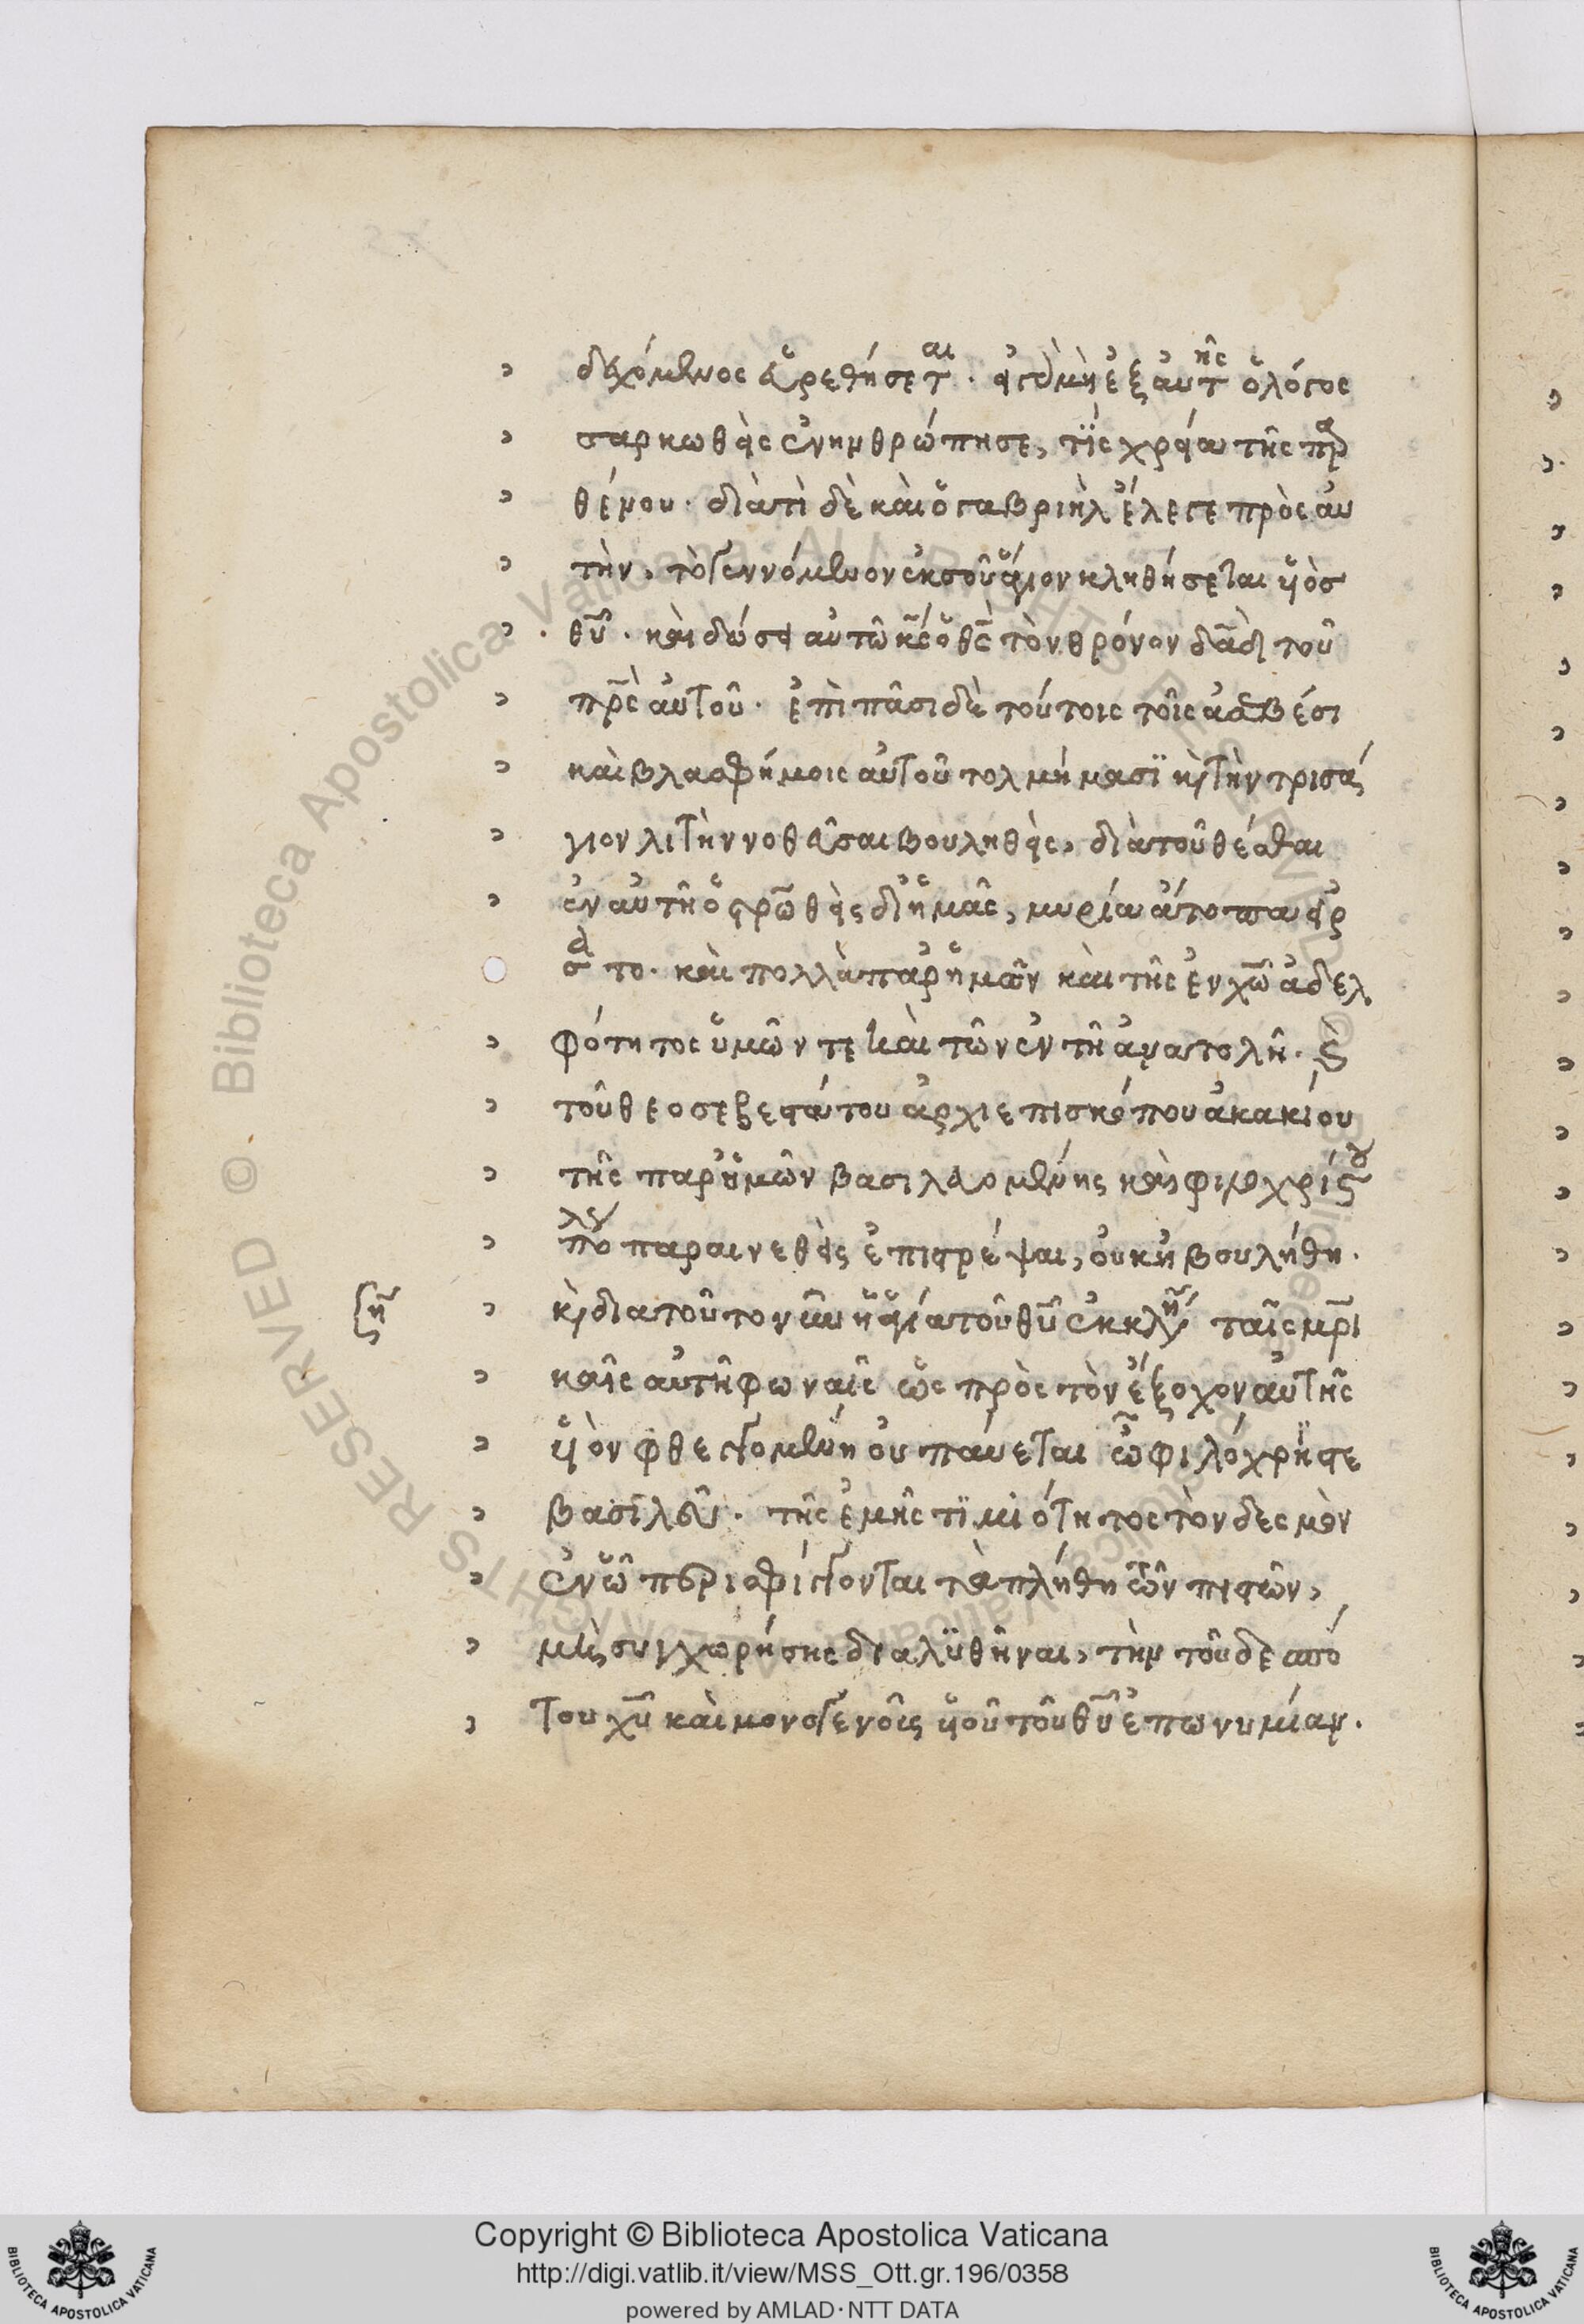 δεχόμενος εὑρεθήσεται. εἰ δὲ μὴ ἐξ αὐτῆς ὁ λόγος
σαρκωθεὶς ἐνηνθρώπησε, τίς χρεία τῆς παρ
θένου. διατὶ δὲ καὶ ὁ γαβριὴλ ἔλεγε πρὸς αυ
τὴν, τὸ γεννόμενον ἐκ σοῦ ἅγιον κληθήσεται υἱὸσ
θυ. καὶ δώσει αὐτῶ κς ὁ θς τὸν θρόνον δαδ τοῦ
πρς αὐτοῦ. ἐπὶ πᾶσι δὲ τούτοις τοῖς ἀσεβέσι
καὶ βλασφήμοις αὐτοῦ τολμήμασϊ κ τὴν τρισά
γιον λιτὴν νοθεῦσαι βουληθεὶς, διὰ τοῦ θέσθαι
ἐν αὐτῆ ὁ στρωθεὶς δι ἡμᾶς, μυρία ἄτοπα εἰρ
γάσατο. καὶ πολλὰ παρ ἡμῶν καὶ τῆς ἐν χω ἀδελ
φότητος ὑμῶν τε καὶ τῶν ἐν τῆ ἀνατολῆ. καὶ
τοῦ θεοσεβεστάτου ἀρχιεπισκόπου ἀκακίου
τῆς παρ ἡμῶν βασιλευομένης καὶ φιλοχρίστου
πόλεως παραινεθεὶς ἐπιστρέψαι, οὐκ ἠβουλήθη.
κ διατοῦτο νῦν ἡ ἁγία τοῦ θυ ἐκκλησία ταῖς μρι
ζη
καῖς αὐτῆ φωναῖς ὡς πρὸς τὸν ἔξοχον αὐτῆς
υἱὸν φθεγγομένη οὐ παύεται ὦ φιλόχρηστε
βασϊλεῦ. τῆς ἐμῆς τϊμιότητος τὸν δεσμὸν
ἐν ὧ περισφίγγονται τὰ πλήθη τῶν πιστῶν,
μὴ συγχωρήσης διαλϋθῆναι, τὴν τοῦ δεσπό
του χυ καὶ μονογενοῖς υἱοῦ τοῦ θυ ἐπωνυμίαν.
Copyright © Biblioteca Apostolica Vaticana
http://digi.vatlib.it/view/MSS_Ott.gr.196/0358
powered by AMLAD·NTT DATA